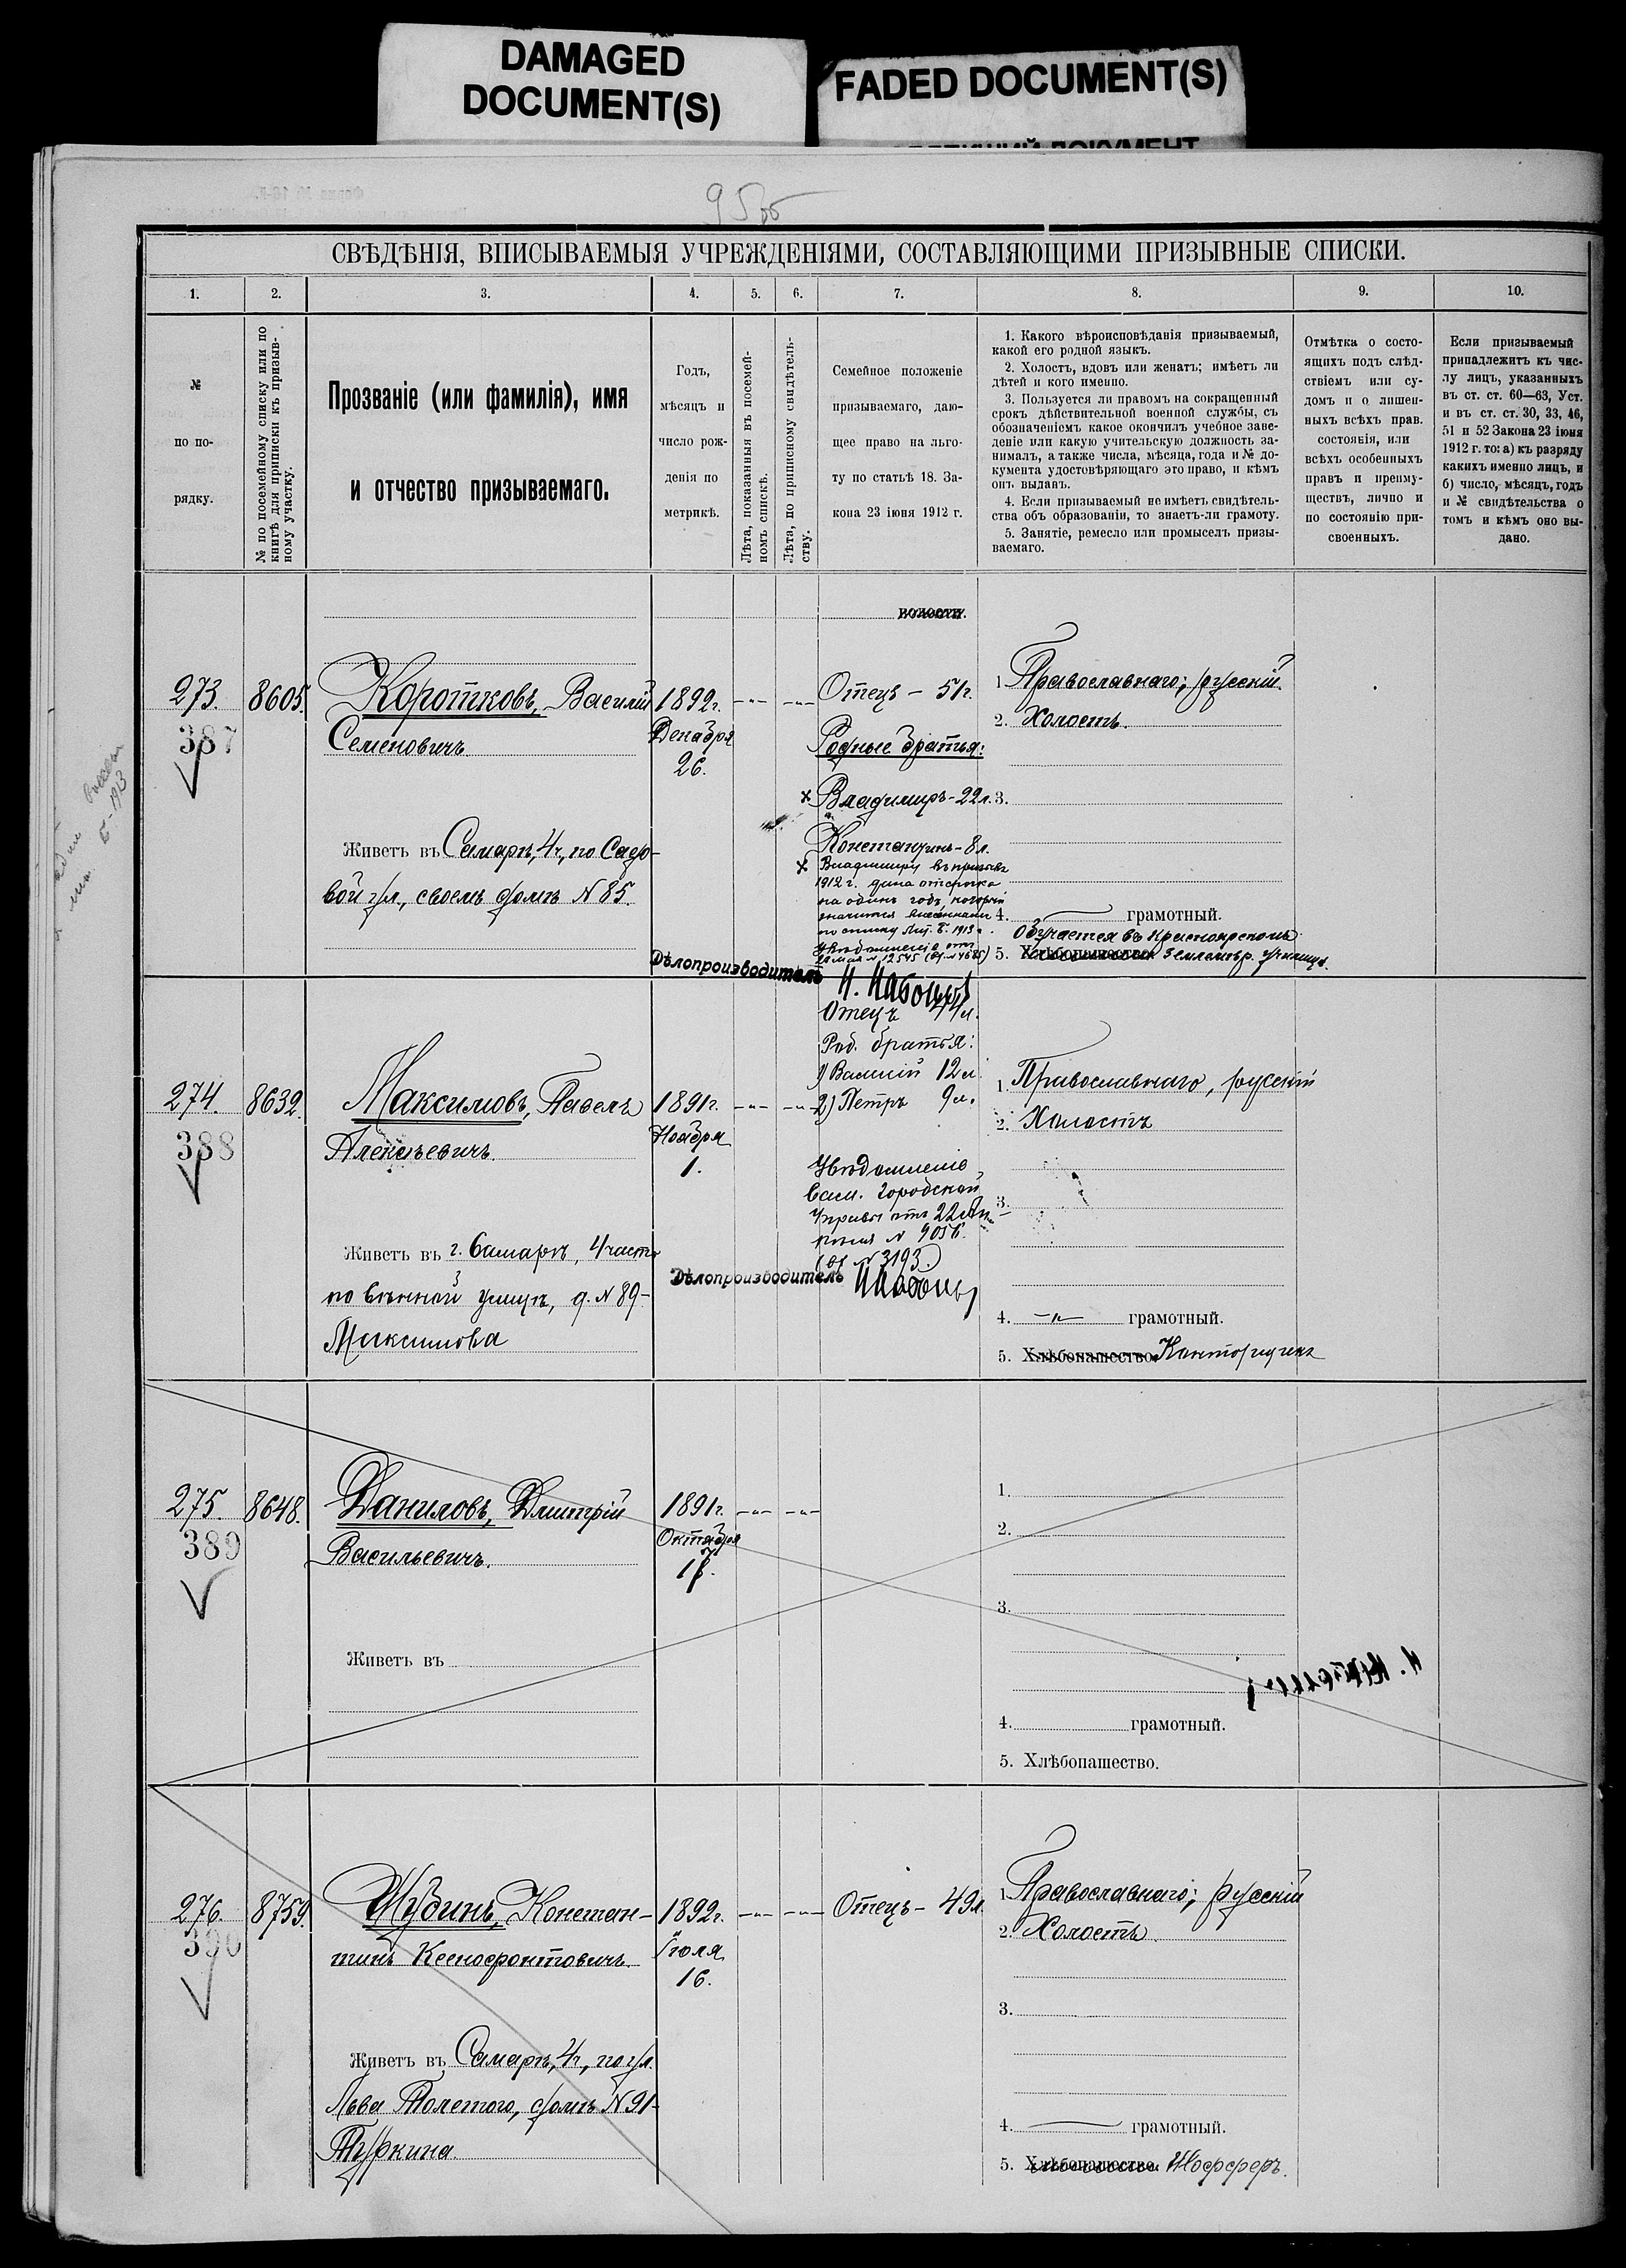 DAMAGED
DOCUMENT(S)
FADED DOCUMENT(S)
95об
СВѢДѢНІЯ, ВПИСЫВАЕМЫЯ УЧРЕЖДЕНІЯМИ, СОСТАВЛЯЮЩИМИ ПРИЗЫВНЫЕ СПИСКИ.
1. 2. 3. 4. 5. 6. 7. 8. 9. 10.
№
по по-
рядку.
№ по посемейному списку или по
книгѣ для приписки къ призыв-
ному участку.
Прозваніе (или фамилія), имя
и отчество призываемаго.
Годъ,
мѣсяцъ и
число рож-
денія по
метрикѣ.
Лѣта, показанныя въ посемей-
номъ спискѣ.
Лѣта, по приписному свидѣтель-
ству.
Семейное положеніе
призываемаго, даю-
щее право на льго-
ту по статьѣ 18. За-
кона 23 іюня 1912 г.
1. Какого вѣроисповѣданія призываемый,
какой его родной языкъ.
2. Холостъ, вдовъ или женатъ; имѣетъ ли
дѣтей и кого именно.
3. Пользуется ли правомъ на сокращенный
срокъ дѣйствительной военной службы, съ
обозначеніемъ какое окончилъ учебное заве-
деніе или какую учительскую должность за-
нималъ, а также числа, мѣсяца, года и № до-
кумента удостовѣряющаго это право, и кѣмъ
онъ выданъ.
4. Если призываемый не имѣетъ свидѣтель-
ства объ образованіи, то знаетъ-ли грамоту.
5. Занятіе, ремесло или промыселъ призы-
ваемаго.
Отмѣтка о состо-
ящихъ подъ слѣд-
ствіемъ или су-
домъ и о лишен-
ныхъ всѣхъ прав.
состоянія, или
всѣхъ особенныхъ
правъ и преиму-
ществъ, лично и
по состоянію при-
своенныхъ.
Если призываемый
принадлежитъ къ чис-
лу лицъ, указанныхъ
въ ст. ст. 60—63, Уст.
и въ ст. ст. 30, 33, 46,
51 и 52 Закона 23 іюня
1912 г. то: а) къ разряду
какихъ именно лицъ, и
б) число, мѣсяцъ, годъ
и № свидѣтельства о
томъ и кѣмъ оно вы-
дано.
волости.
273. 8605. Коротковъ, Василій
387
Семеновичъ
1892г.
Декабря
26.
Отецъ - 51г.
Родные братья:
× Владимиръ - 22л.
Константинъ - 8л.
× Владимиру въ призывъ
1912 г. дана отсрочка
на одинъ годъ, который
значится
по списку Лит. Б. 1913 г.
Увѣдомленіе отъ
№ 12545
1. Православнаго; русскій.
2. Холостъ.
3.
4. грамотный.
Обучается въ Красноярскомъ
5. Хлѣбопашество Землемѣр. Училищѣ.
Живетъ въ Самарѣ, 4ч, по Садо-
вой ул, своемъ домѣ № 85.
Дѣлопроизводитель
274. 8639. Максимовъ, Павелъ
388
Алексѣевичъ
1891г.
Ноября
1.
Отецъ 44л.
Род. братья:
1) Василій 12л
2) Петръ 9л.
Увѣдомленіе
Сам. Городской
Управы отъ 22
№ 9056.
№ 3193
1. Православнаго, русскій
2. Холостъ
3.
4. грамотный.
5. Хлѣбопашество. Конторщикъ
Живетъ въ г. Самарѣ, 4 часть
улицѣ, д. № 89-
Максимова
Дѣлопроизводитель
275. 8648. Даниловъ, Дмитрій
389
Васильевичъ.
1891г.
Октября
Живетъ въ
1.
2.
3.
4. грамотный.
5. Хлѣбопашество.
276. 8759. Шубинъ, Констан-
390
тинъ Ксенофонтовичъ
1892г.
Іюля
16.
Отецъ - 49л.
1. Православнаго; русскій
2. Холостъ.
3.
4. грамотный.
5. Хлѣбопашество. Шофферъ.
Живетъ въ Самарѣ, 4ч, по ул.
Льва Толстого, домъ № 91-
Туркина.